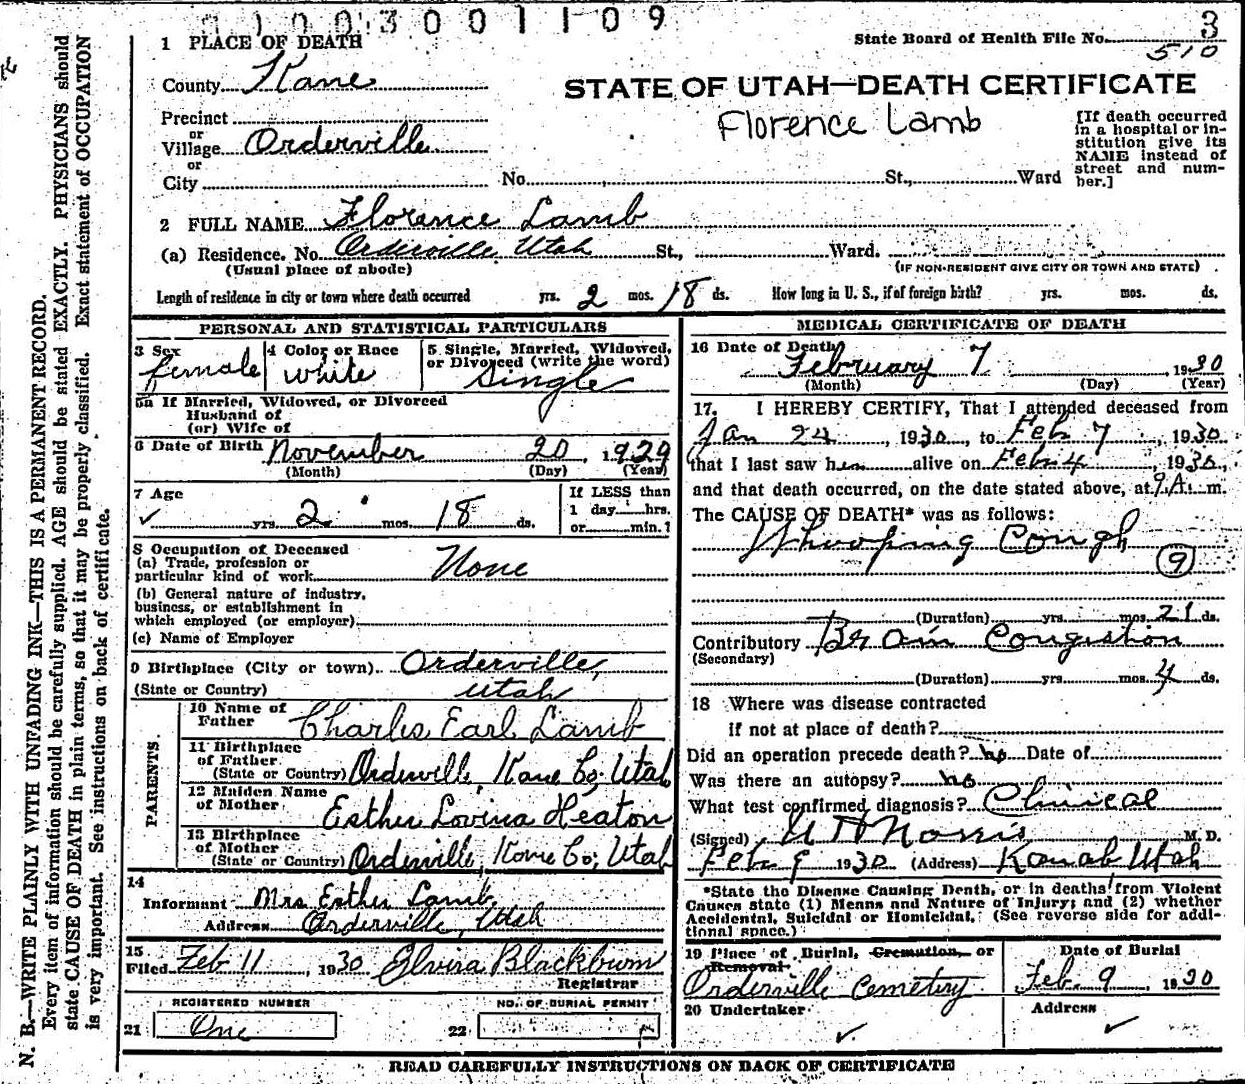 01003001109
State Board of Health File No. 3
510
1 PLACE OF DEATH
County Kane
STATE OF UTAH—DEATH CERTIFICATE
Florence Lamb
Precinct
or
Village Orderville
or
City
No. St., Ward
[If death occurred
in a hospital or in-
stitution give its
NAME instead of
street and num-
ber.]
2 FULL NAME Florence Lamb
(a) Residence. No. Orderville Utah St., Ward.
(Usual place of abode)
(IF NON-RESIDENT GIVE CITY OR TOWN AND STATE)
Length of residence in city or town where death occurred yrs. 2 mos. 18 ds. How long in U. S., if of foreign birth? yrs. mos. ds.
PERSONAL AND STATISTICAL PARTICULARS
3 Sex
female
4 Color or Race
White
5 Single, Married, Widowed,
or Divorced (write the word)
Single
5a If Married, Widowed, or Divorced
Husband of
(or) Wife of
6 Date of Birth November 20 1929
(Month) (Day) (Year)
7 Age
yrs. 2 mos. 18 ds.
If LESS than
1 day hrs.
or min.?
8 Occupation of Deceased
(a) Trade, profession or
particular kind of work None
(b) General nature of industry,
business, or establishment in
which employed (or employer)
(c) Name of Employer
9 Birthplace (City or town) Orderville,
(State or Country) Utah
PARENTS
10 Name of
Father Charles Earl Lamb
11 Birthplace
of Father
(State or Country) Orderville, Kane Co; Utah
12 Maiden Name
of Mother Esther Lovina Heaton
13 Birthplace
of Mother
(State or Country) Orderville, Kane Co; Utah
14
Informant Mrs Esther Lamb
Address Orderville, Utah
15
Filed Feb 11, 1930 Elvira Blackburn
Registrar
REGISTERED NUMBER
21 One
NO. OF BURIAL PERMIT
22
MEDICAL CERTIFICATE OF DEATH
16 Date of Death
February 7, 1930
(Month) (Day) (Year)
17. I HEREBY CERTIFY, That I attended deceased from
Jan 24, 1930, to Feb 7, 1930
that I last saw her alive on Feb 4, 1930,
and that death occurred, on the date stated above, at 9 A. m.
The CAUSE OF DEATH* was as follows:
Whooping Cough
9
(Duration) yrs. mos. 21 ds.
Contributory Brain Congestion
(Secondary)
(Duration) yrs. mos. 4 ds.
18 Where was disease contracted
if not at place of death?
Did an operation precede death? no Date of
Was there an autopsy? no
What test confirmed diagnosis? Clinical
(Signed) Norris M. D.
Feb 9 1930 (Address) Kanab, Utah
*State the Disease Causing Death, or in deaths from Violent
Causes state (1) Means and Nature of Injury; and (2) whether
Accidental, Suicidal or Homicidal. (See reverse side for addi-
tional space.)
19 Place of Burial, Cremation, or
Removal
Orderville Cemetery
Date of Burial
Feb. 9, 1930
20 Undertaker
Address
READ CAREFULLY INSTRUCTIONS ON BACK OF CERTIFICATE
N. B.—WRITE PLAINLY WITH UNFADING INK—THIS IS A PERMANENT RECORD.
Every item of information should be carefully supplied. AGE should be stated EXACTLY. PHYSICIANS should
state CAUSE OF DEATH in plain terms, so that it may be properly classified. Exact statement of OCCUPATION
is very important. See instructions on back of certificate.